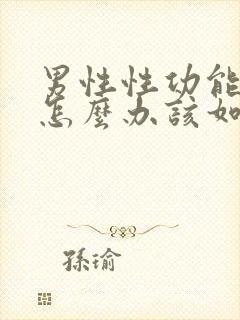 男性性功能
怎麼办該如
孫瑜